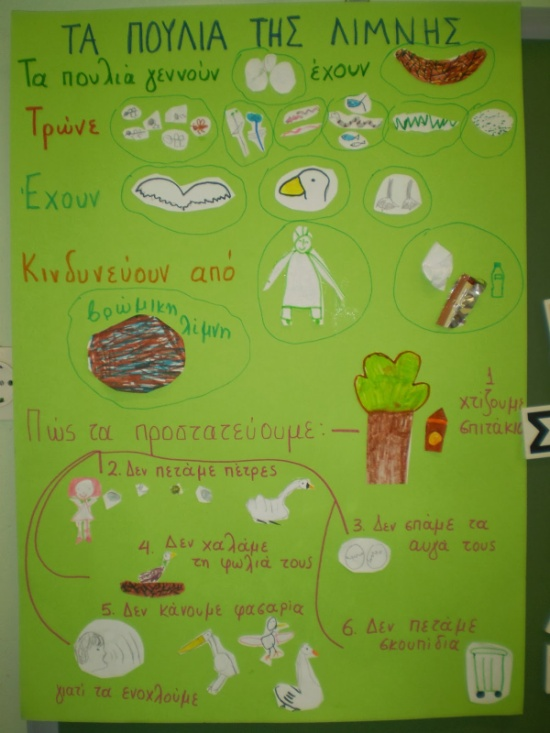 ΤΑ ΠΟΥΛΙΑ ΤΗΣ ΛΙΜΝΗΣ
Τα πουλιά γεννούν έχουν
Τρώνε
Έχουν
Κινδυνεύουν από
βρώμικη
λίμνη
Πώς τα προστατεύουμε:
1
χτίζουμε
σπιτάκια
2. Δεν πετάμε πέτρες
3. Δεν σπάμε τα
αυγά τους
4. Δεν χαλάμε
τη φωλιά τους
5. Δεν κάνουμε φασαρία
γιατί τα ενοχλούμε
6. Δεν πετάμε
σκουπίδια
Σ